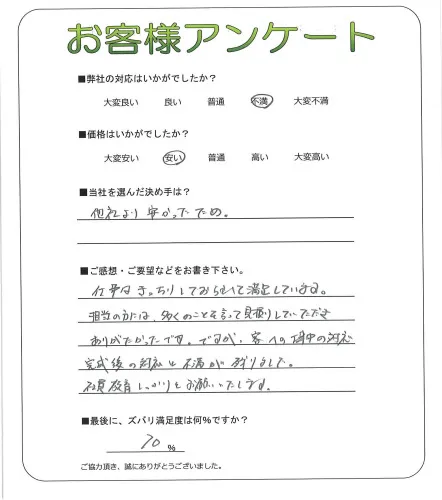 お客様アンケート
■弊社の対応はいかがでしたか？
大変良い 良い 普通 不満 大変不満
■価格はいかがでしたか？
大変安い 安い 普通 高い 大変高い
■当社を選んだ決め手は？
他社より安かったため。
■ご感想・ご要望などをお書き下さい。
仕事はきっちりしておられて満足しています。
担当の方には、多くのことを言って見積りしていただき
ありがたかったです。ですが、客への途中の対応
完成後の対応と不満が残りました。
社員教育しっかりとお願いいたします。
■最後に、ズバリ満足度は何％ですか？
70 %
ご協力頂き、誠にありがとうございました。